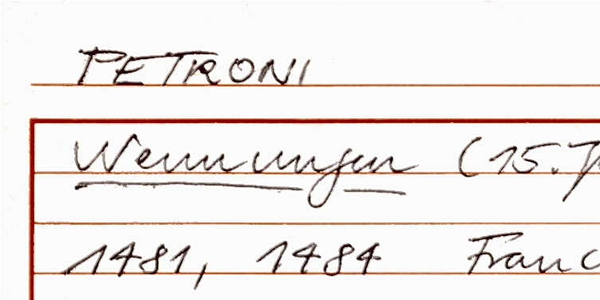 PETRONI
Nennungen (15. J
1481, 1484 Franc